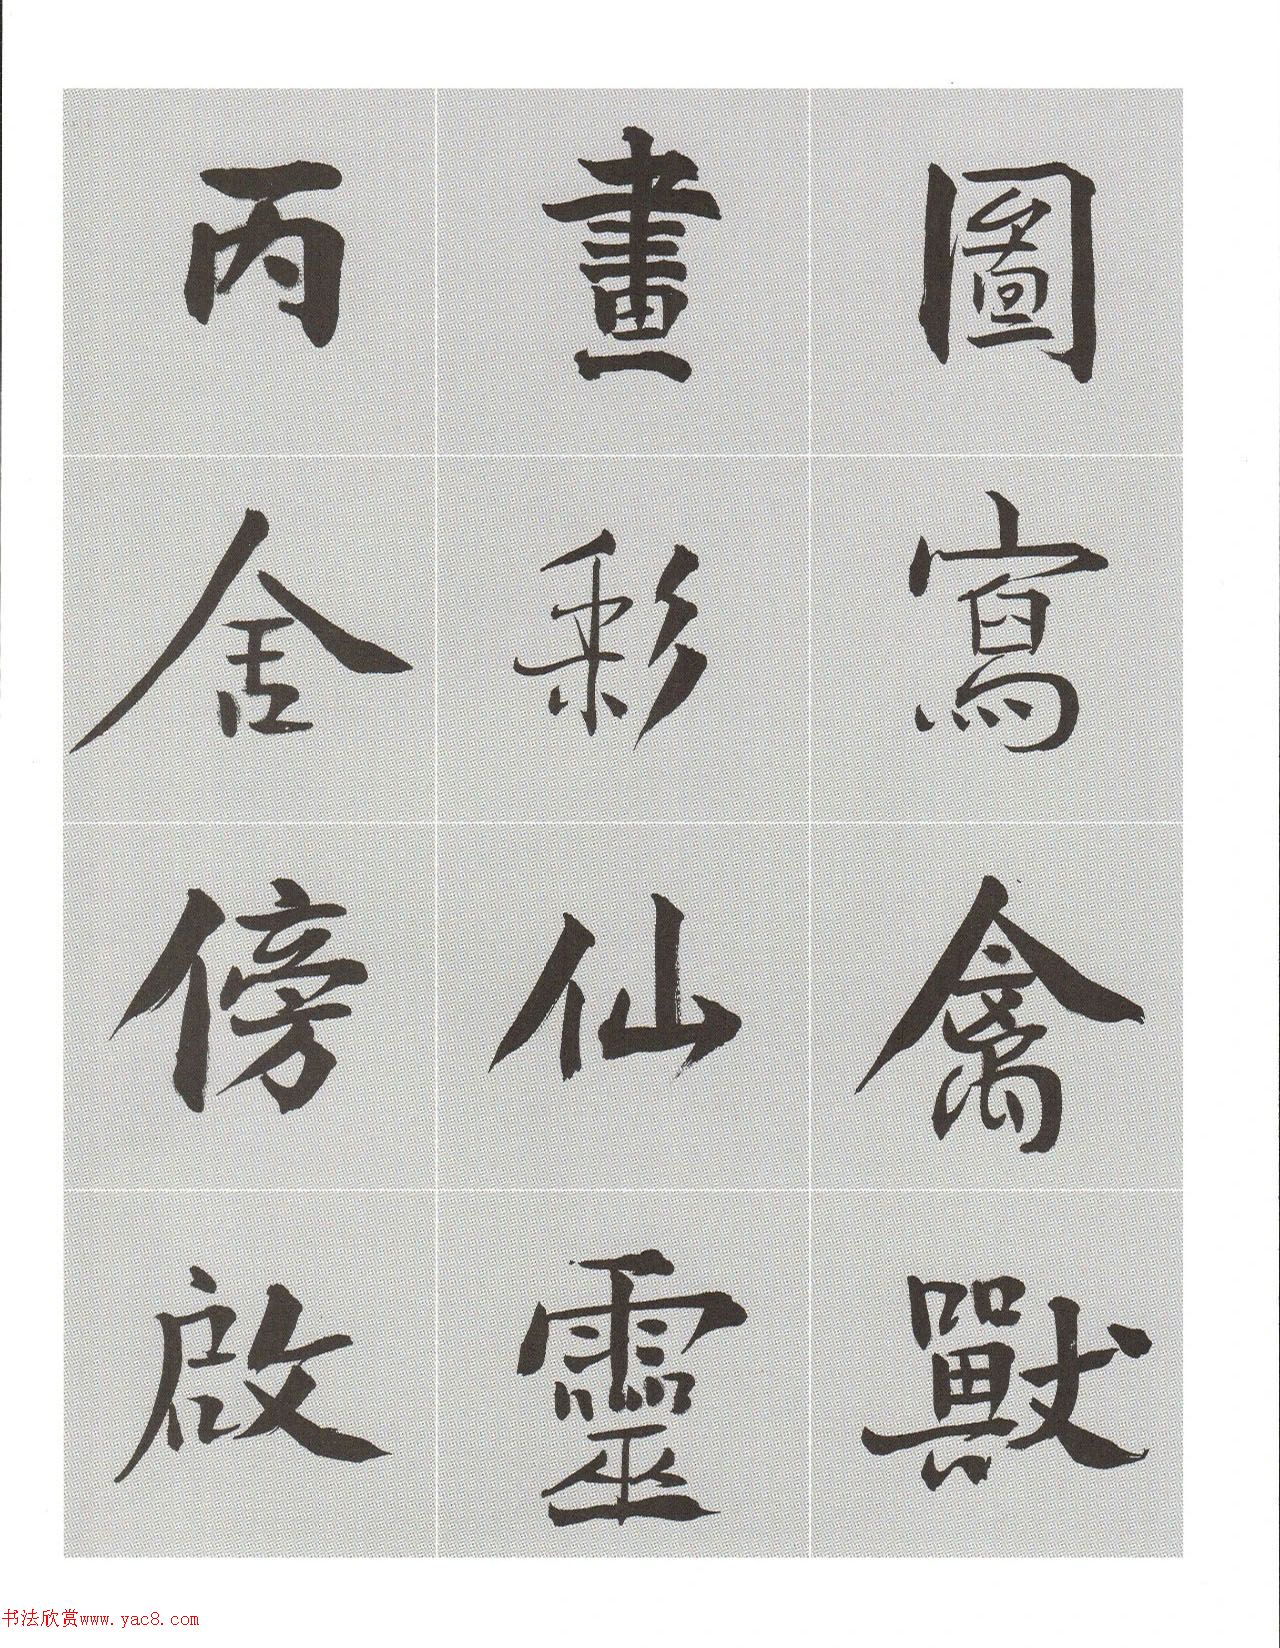 圖寫禽獸
畫彩仙靈
丙舍傍啟
书法欣赏www.yac8.com